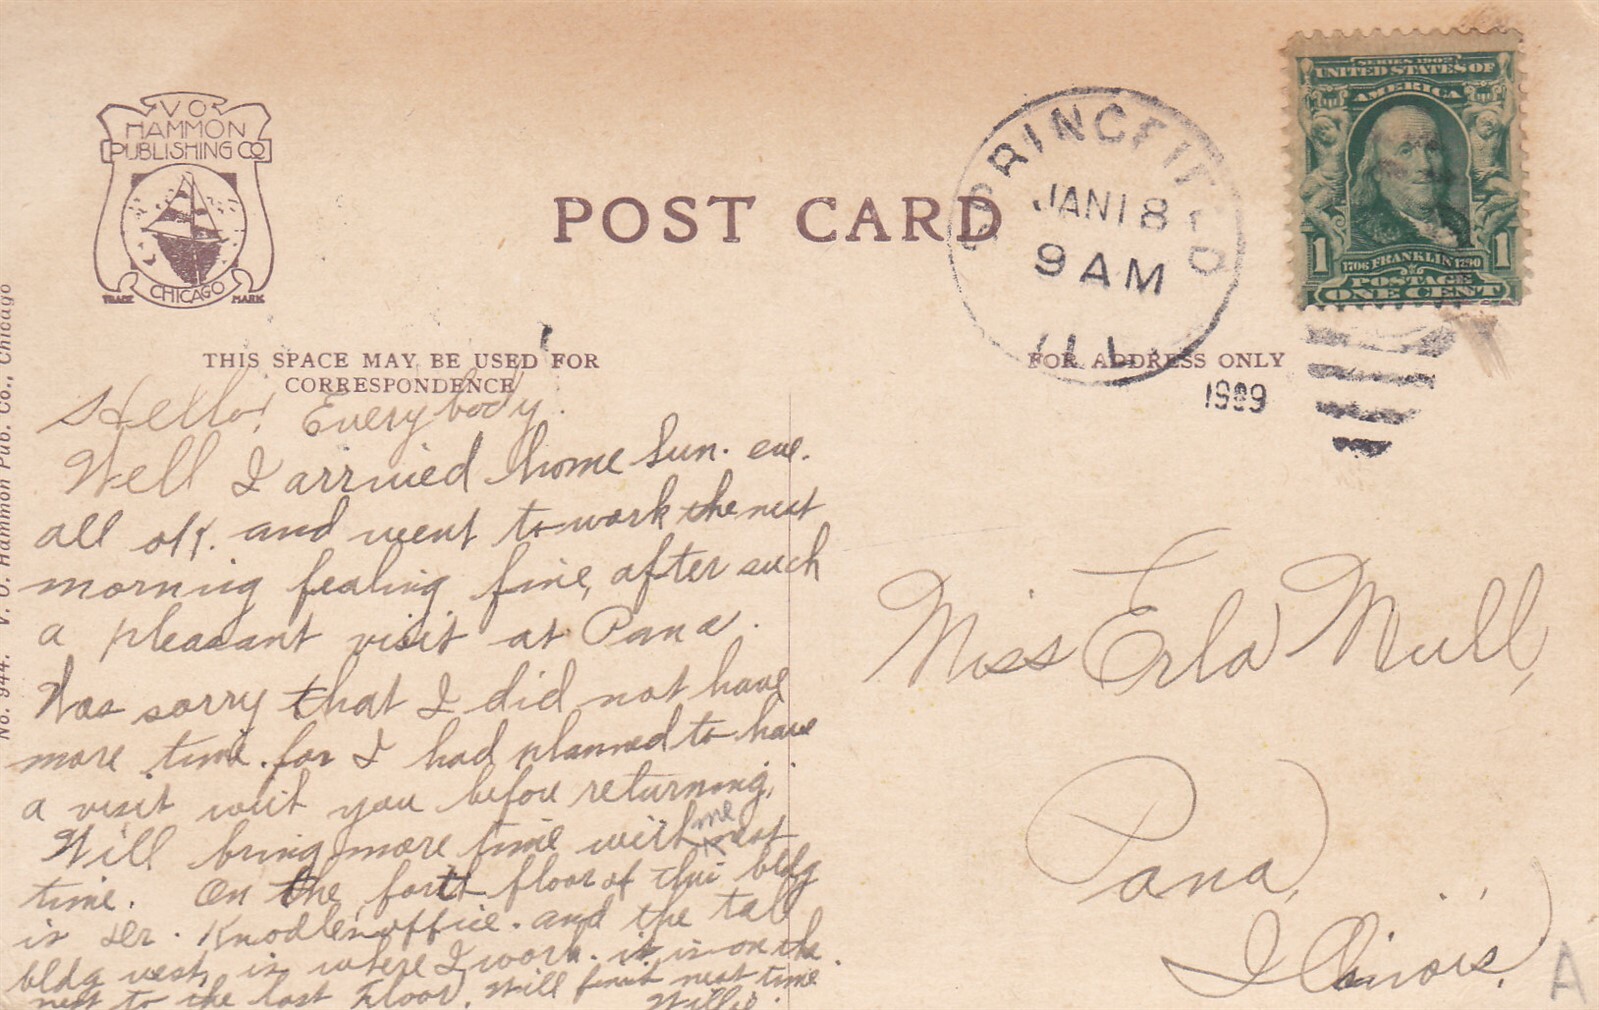 V O
HAMMON
PUBLISHING CO
CHICAGO
TRADE MARK
POST CARD
SPRINGFIELD
JAN 18
9 AM
ILL.
1909
SERIES 1902
UNITED STATES OF
AMERICA
1706 FRANKLIN 1790
POSTAGE
1 ONE CENT 1
THIS SPACE MAY BE USED FOR
CORRESPONDENCE
FOR ADDRESS ONLY
No. 944. V. O. Hammon Pub. Co., Chicago
Hello! Everybody.
Well I arrived home Sun. eve.
all ok. and went to work the next
morning fealing fine, after such
a pleasant visit at Pana.
Was sorry that I did not have
more time. for I had planned to have
a visit wit you before returning.
Will bring more time with me next
time. On the forth floor of this bldg
is Dr. Knodle's office. and the tall
bldg west, is where I work. it is on the
next to the last floor. Will finish next time.
Willie.
Miss Erla Mull,
Pana,
Illinois.
A